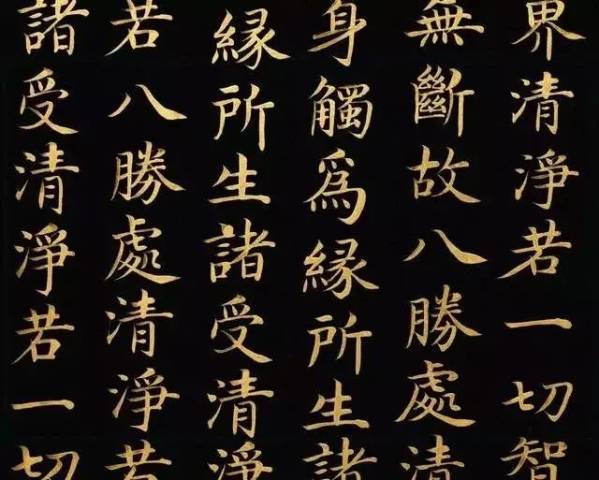 界清淨若一切智
無斷故八勝處清
身觸爲緣所生諸
緣所生諸受清淨
若八勝處清淨若
諸受清淨若一切